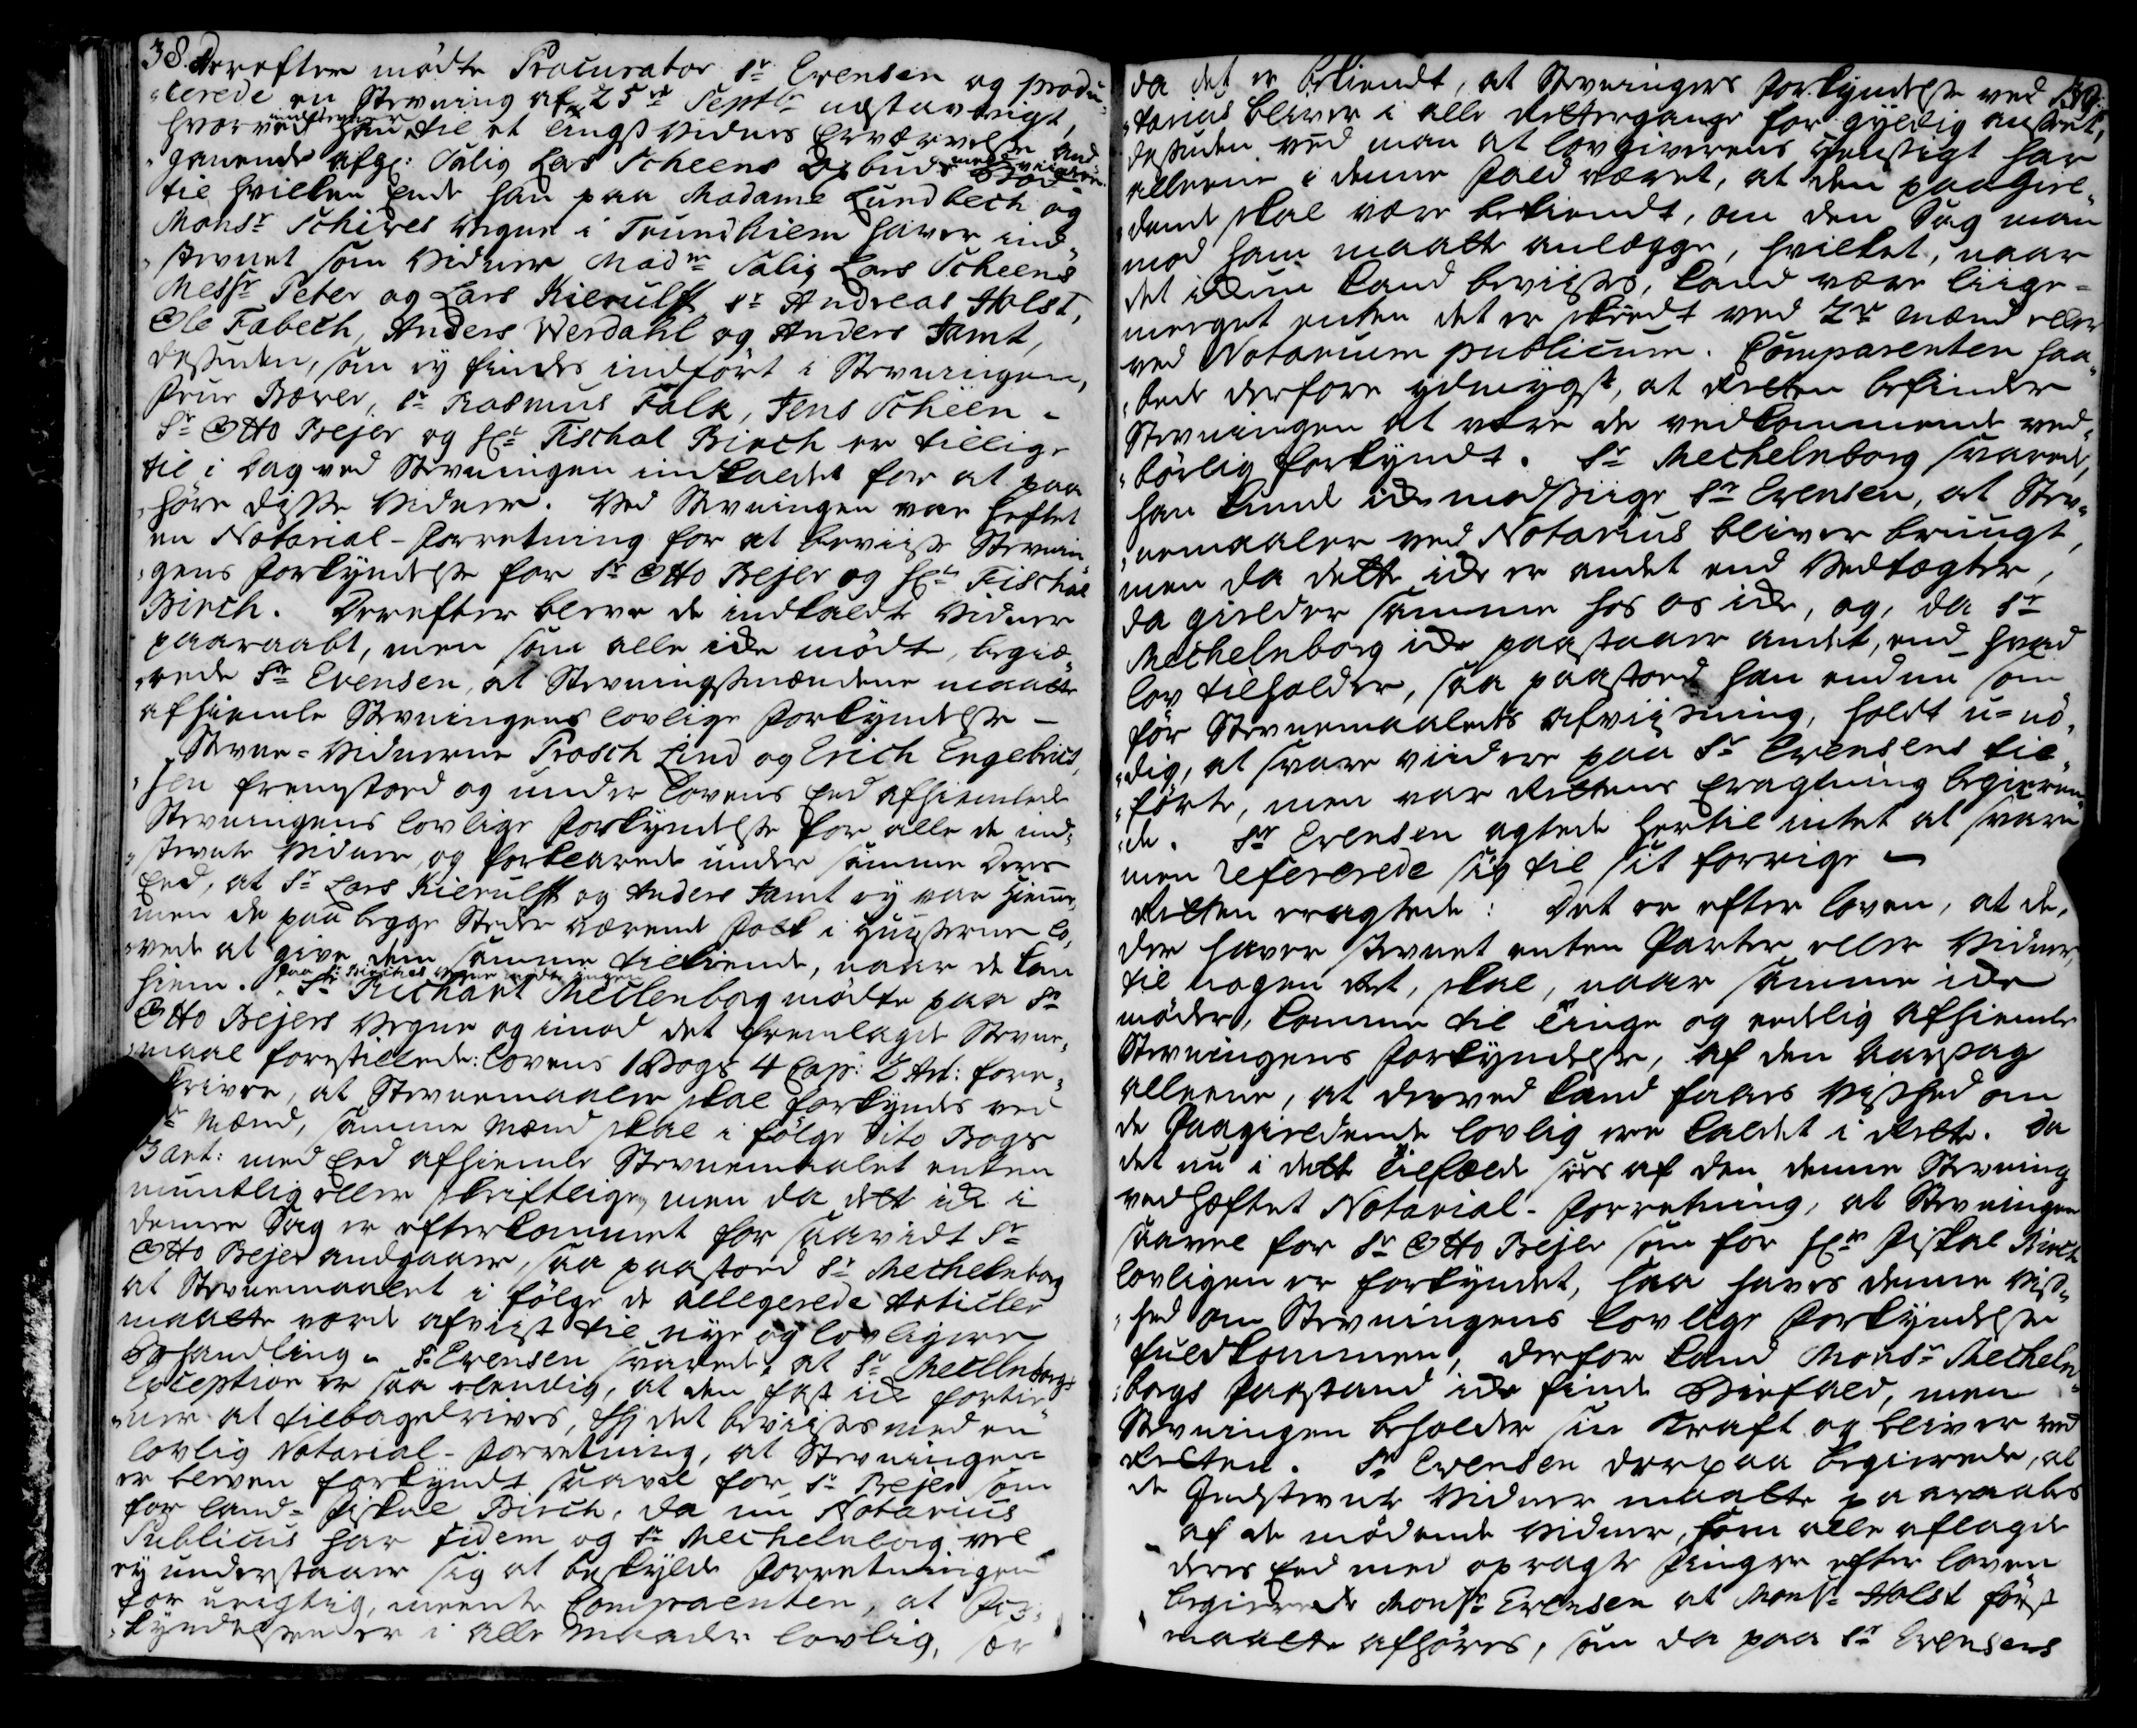 38. Derefter mødte Procurator Sr Evensen og produ¬
cerede en Stevning af 25de Septbr nestavvigt,
hvorved indstevner han til et tings Vidnes Erværvelse and¬
gaaende afg: Salig Lars Scheens Dødboe
til hvilken Ende han paa Madame Lundbech og
Monsr Schives Vegne i Trundhiem haver ind¬
stevnet som Vidner Madme Salig Lars Scheens
Messr Peter og Lars Kierulff Sr Andreas Holst,
Ole Fabech, Anders Werdahl og Anders Jamt,
desuden, som ej findes indført i Stevningen,
Frue Borer, Sr Rasmus Falk, Jens Scheen –
Sr Otto Bejer og Hr Fischal Birch er tillige
til i Dag ved Stevningen indkaldet for at paa
høre disse Vidner. Ved Stevningen var heftet
en Notarial-Forretning for at beviise Stevnin¬
gens Forkyndelse for Sr Otto Bejer og Hr Fischal
Birch. Derefter bleve de indkaldte Vidner
paaraabt, men som alle ikke mødte, begiæ¬
rede Sr Evensen, at Stevningsmændene maatte
afhiemle Stevningens lovlige Forkyndelse –
Stevne-Vidnerne Brosch Lind og Erich Engebrict¬
sen fremstoed og under Lovens Eed afhiemlede
Stevningens lovlige Forkyndelse for alle de ind¬
stevnte Vidner, og forklarede under samme deres
Eed, at Sr Lars Kierulff og Anders Jamt ej var hiemme,
men de paa begge Steder værende Folk i Huuserne lo¬
vede at give dem samme tilkiende, naar de kom
hiem. paa Sr Birches Vegne mødte ingen Sr Richart Mecklenborg mødte paa Sr
Otto Bejers Vegne og imod det fremlagde Stevne¬
maal forestillede: Lovens 1 Bogs 4 Cap: 2 Art: fore¬
skriver, at Stevnemaaler skal forkyndes ved
Mænd, samme Mænd skal i følge dito Bogs
3 Art: med Eed afhiemle Stevnemaalet enten
mundtlig eller skriftlige, men da dett ikke i
denne Sag er efterkommet for saavidt Sr
Otto Bejer andgaaer, saa paastoed Sr Mechelnborg
at Stevnemaalet i følge de allegerede Articler
maatte vorde afviist til nye og lovligere
Behandling – Sr Evensen svarede, at Sr Mecklenborgs
Exception er saa elendig, at den fast ikke fortie¬
ner at tilbagedrives, thj det beviises med en
lovlig Notarial-Forretning, at Stevningen
er bleven forkyndt saavel for Sr Bejer som
for Land-Fiskal Birch, da nu Notarius
Publicus har fidem og Sr Mechelnborg vel
ej understaaer sig at beskylde Forretningen
for urigtig, meente Comparenten, at For¬
kyndelsen er i alle Maader lovlig, sær
39.
da det er bekiendt, at Stevningers Forkyndelse ved No¬
tarius bliver i alle Rettergange for gyldig anseet,
desuden ved man at Lovgiverens Hensigt har
alleene i denne Fald været, at den paagiel¬
dende skal være bekiendt, om den Sag man
mod ham maatte anlægge, hvilket, naar
det ickun kand beviises, kand være lige¬
meeget enten det er skeedt ved 2de Mænd eller
ved Notarium publicum. Comparenten haa¬
bede derfore ydmygst, at Retten befinder
Stevningen at være de vedkommende ved¬
børlig forkyndt. Sr Mechelnborg svarede,
han kunde ikke modsiige Sr Evensen, at Stev¬
nemaaler ved Notarius bliver brugt,
men da dette ikke er andet end Vedtægter,
da gielder samme hos os ikke, og, da Sr
Mechelnborg ikke paastaaer andet, end hvad
Lov tilholder, saa paastoed han endnu som
før Stevnemaalets afviisning, holdt u-nø¬
dig, at svare viidere paa Sr Evensens til¬
førte, men var Rettens Eragtning begieren¬
de. Sr Evensen agtede hertil intet at svare
men refererede sig til sit forrige –
Retten eragtede: Det er efter Loven, at de,
der haver stevnet enten Parter eller Vidner,
til nogen Ret, skal, naar samme ikke
møder, komme til Tinge og eedelig afhiemle
Stevningens Forkyndelse, af den Aarsag
alleene, at derved kand faaes Vished om
de Paagieldende lovlig ere kaldet i Rette. Da
det nu i dette Tilfælde sees af den denne Stevning
vedhæftet Notarial-Forretning, at Stevningen
saavel for Sr Otto Bejer som for Hr Fiskal Birch
lovligen er forkyndet, saa haves denne Vis¬
hed om Stevningens lovlige Forkyndelse
fuldkommen, derfor kand Monsr Mecheln¬
borgs Paastand ikke finde Biefald, men
Stevningen beholder sin Kraft og bliver ved
Retten. Sr Evensen derpaa begierede, at
de Indstevnte Vidner maatte paaraabes
af de mødende Vidner, som alle aflagde
deres Eed med opragte Fingre efter Loven
begierede Monsr Evensen at Monsr Holst først
maatte afhøres, som da paa Sr Evensens